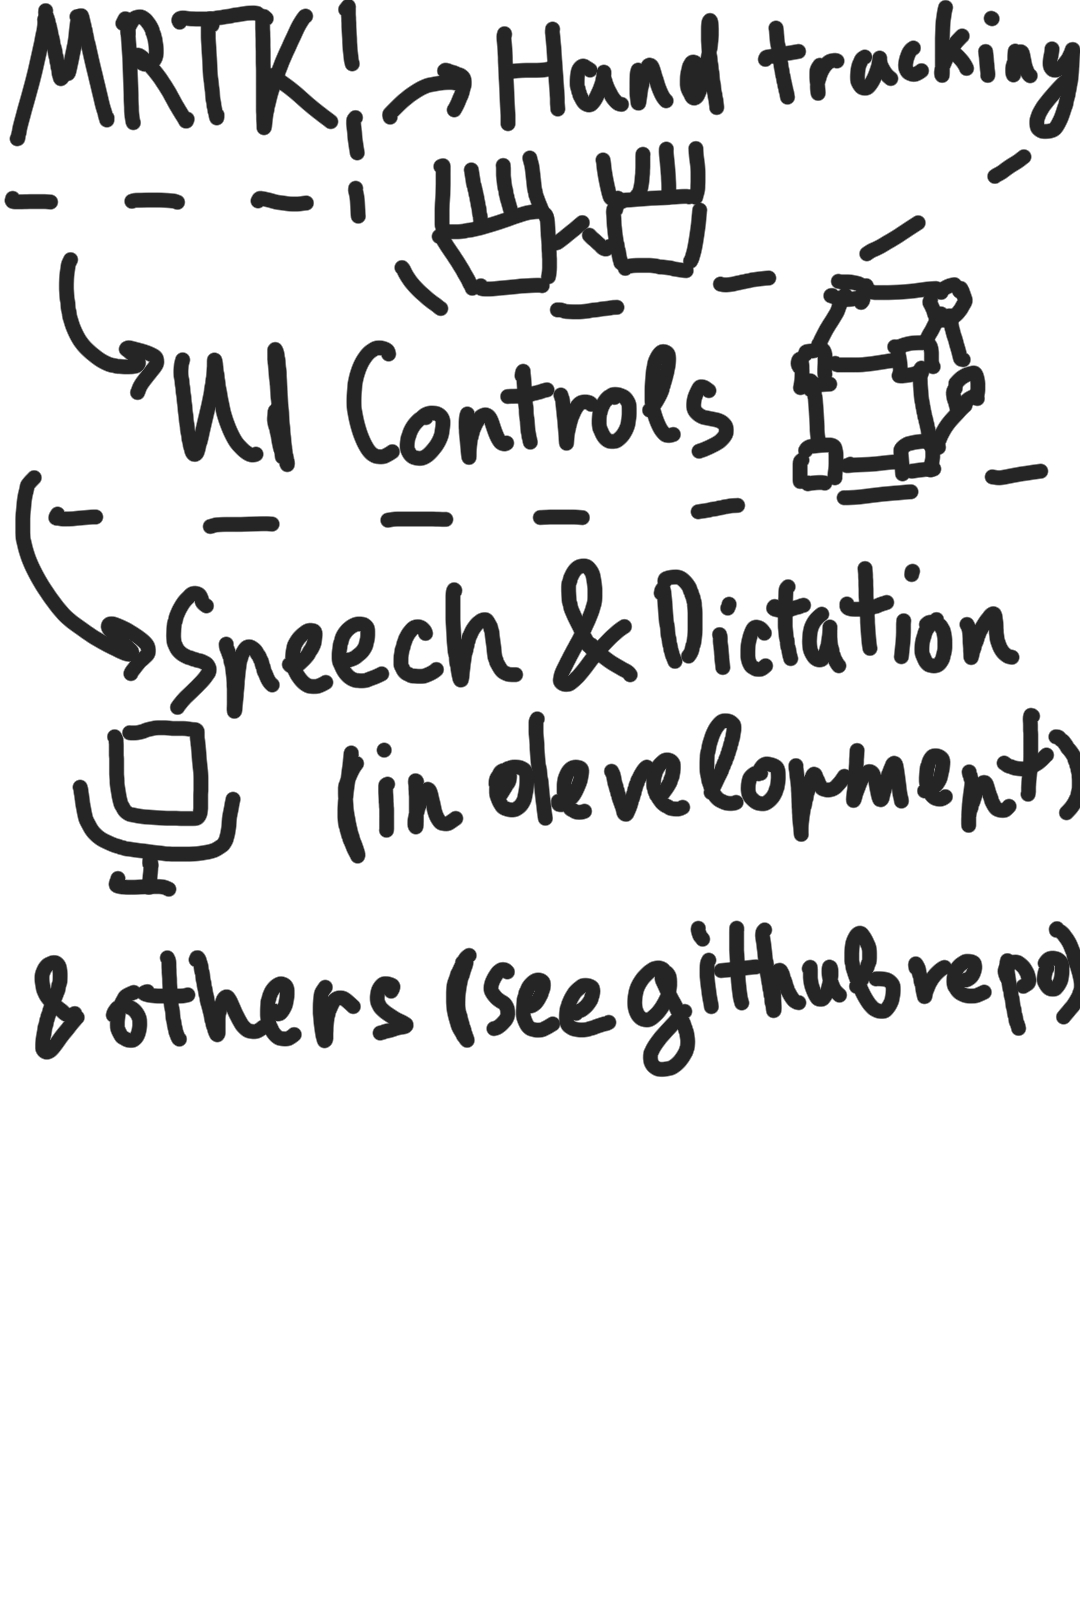 MRTK
Hand tracking
UI Controls
Speech & Dictation
(in development)
& others (see github repo)